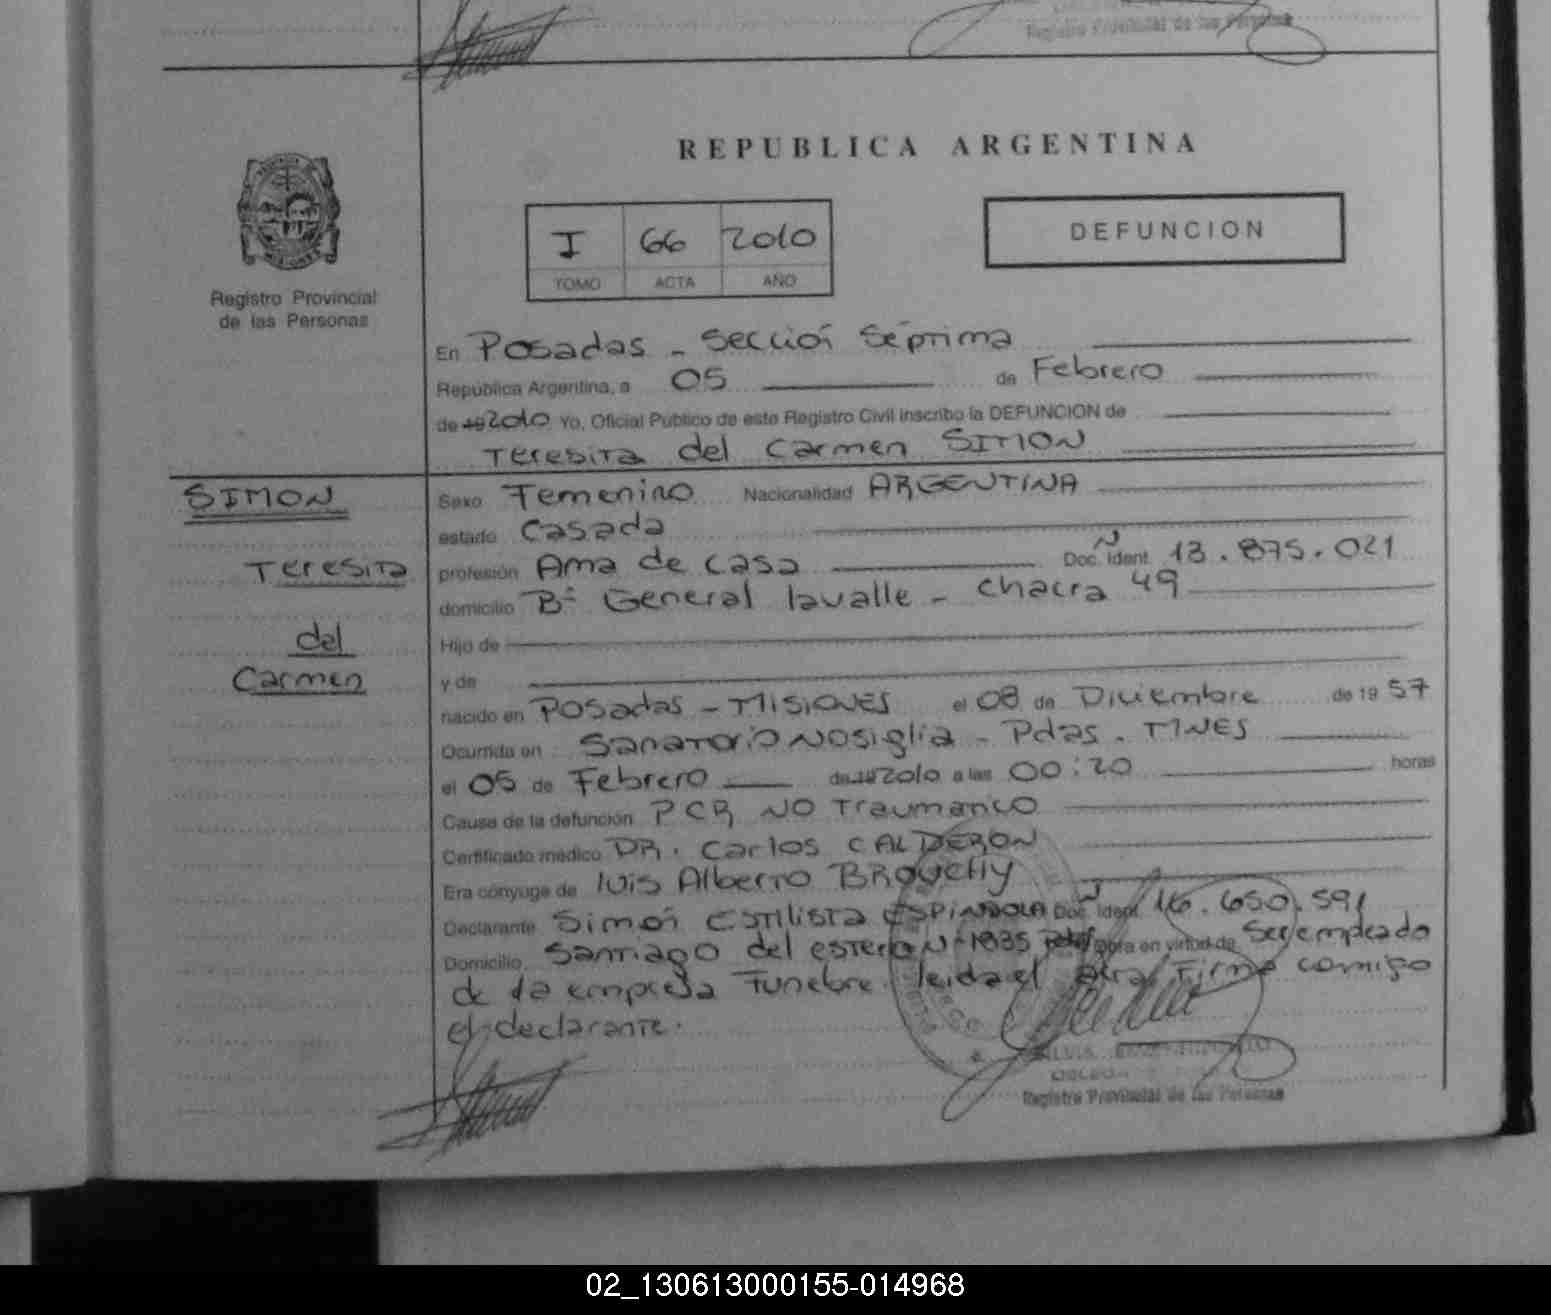 Registro Provincial de las Personas
REPUBLICA ARGENTINA
I 66 2010
TOMO ACTA AÑO
DEFUNCION
Registro Provincial
de las Personas
En Posadas - Sección Séptima
República Argentina, a 05 de Febrero
de 19 2010 Yo, Oficial Público de este Registro Civil inscribo la DEFUNCION de
Teresita del Carmen SIMON
SIMON
Teresita
del
Carmen
Sexo Femenino Nacionalidad ARGENTINA
estado Casada
profesión Ama de casa Doc. Ident. N 13.875.021
domicilio Bº General lavalle - chacra 49
Hijo de
y de
nacido en Posadas - MISIONES el 08 de Diciembre de 19 57
Ocurrida en Sanatorio Nosiglia - Pdas. MNES
el 05 de Febrero de 19 2010 a las 00:20 horas
Causa de la defunción PCR NO Traumatico
Certificado médico DR. Carlos CALDERON
Era cónyuge de luis Alberto
Declarante Simón ESTILISTA ESPINDOLA Doc. Ident. N 16.650.591
Domicilio Santiago del estero Nº 1835 obra en virtud de Ser empleado
de la empresa Funebre. leida el acta, Firma conmigo
el declarante.
Registro Provincial de las Personas
02_130613000155-014968